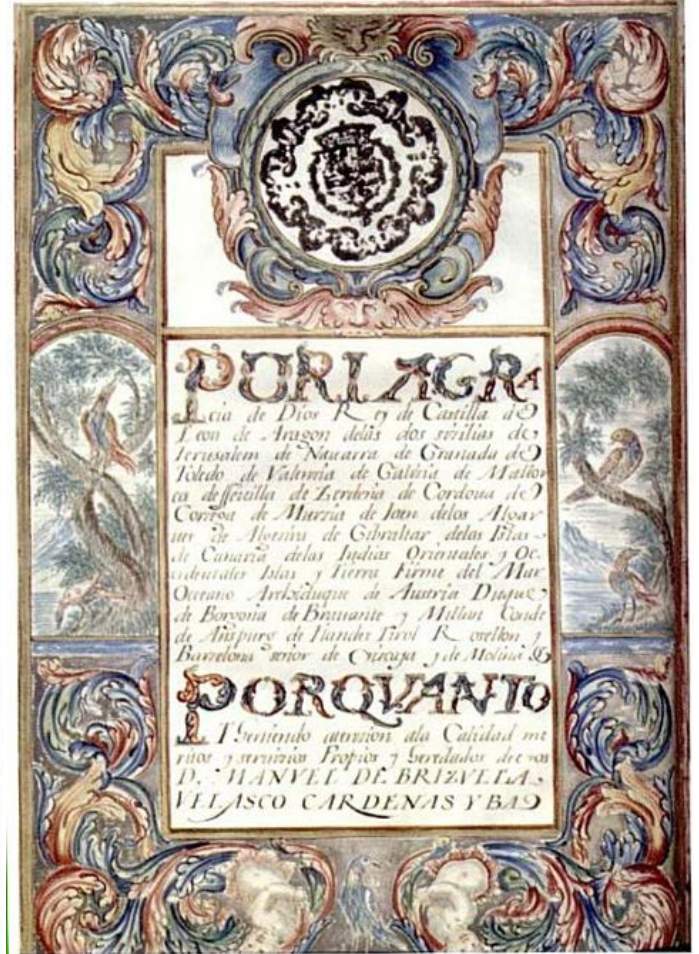 POR LA GRA
cia de Dios Rey de Castilla de
Leon de Aragon delas dos sizilias de
Ierusalem de Nauarra de Granada de
Toledo de Valenzia de Galizia de Mallor
ca de sseuilla de Zerdeña de Cordoua de
Corzega de Murzia de Iaen delos Algar
ues de Algezira de Gibraltar delas Islas
de Canaria delas Indias Orientales y Oc
cidentales Islas y Tierra Firme del Mar
Oceano Archiduque de Austria Duque
de Borgoña de Brauante y Millan Conde
de Auspurg de Flandes Tirol Rosellon y
Barcelona señor de Vizcaja y de Molina &
PORQVANTO
Theniendo atenzion ala Calidad me
ritos y seruizios Propios y heredados de vos
D. MANVEL DE BRIZVELA
VELASCO CARDENAS Y BAD